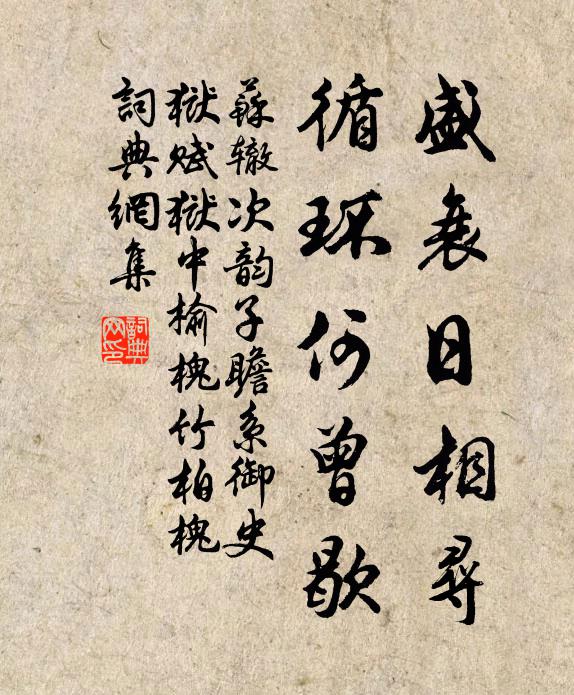 盛衰日相尋
循环何曾歇
蘇辙次韵子瞻系御史
獄赋獄中榆槐竹柏槐
詞典網集
詞典网印